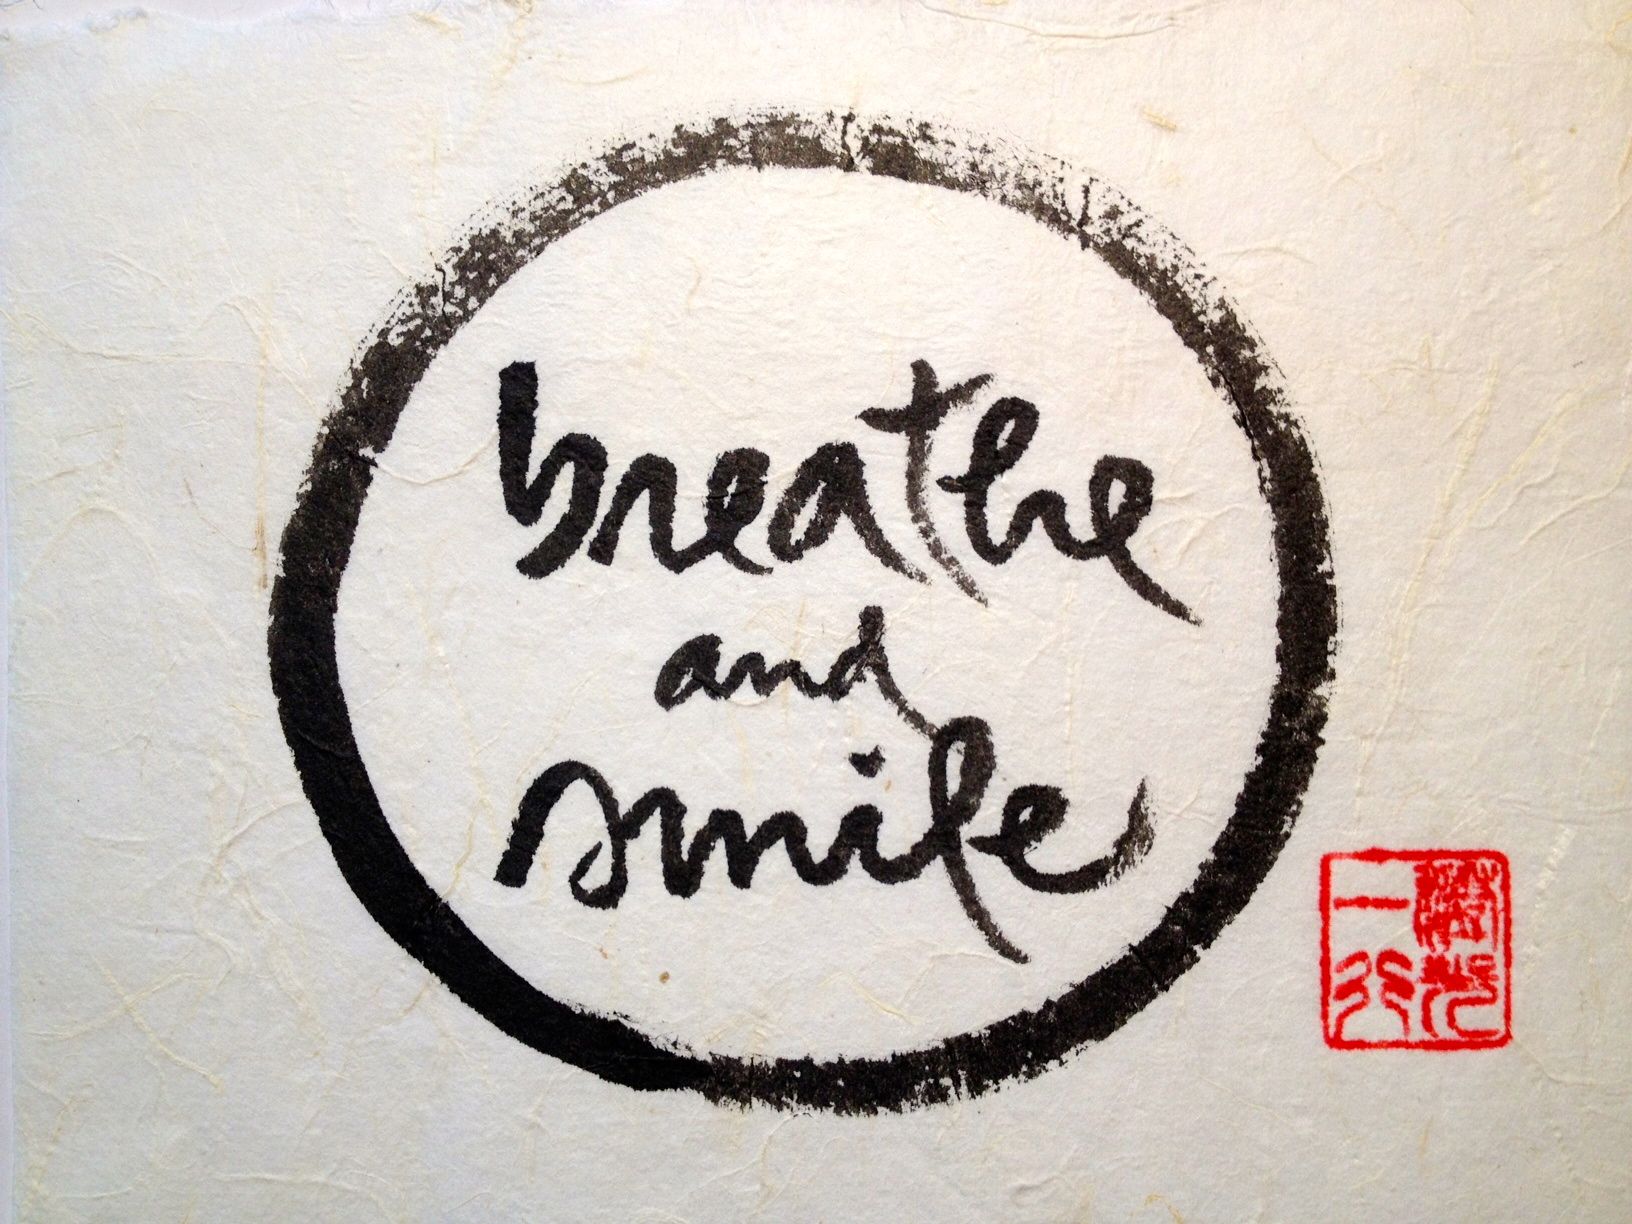 breathe
and
smile
一行